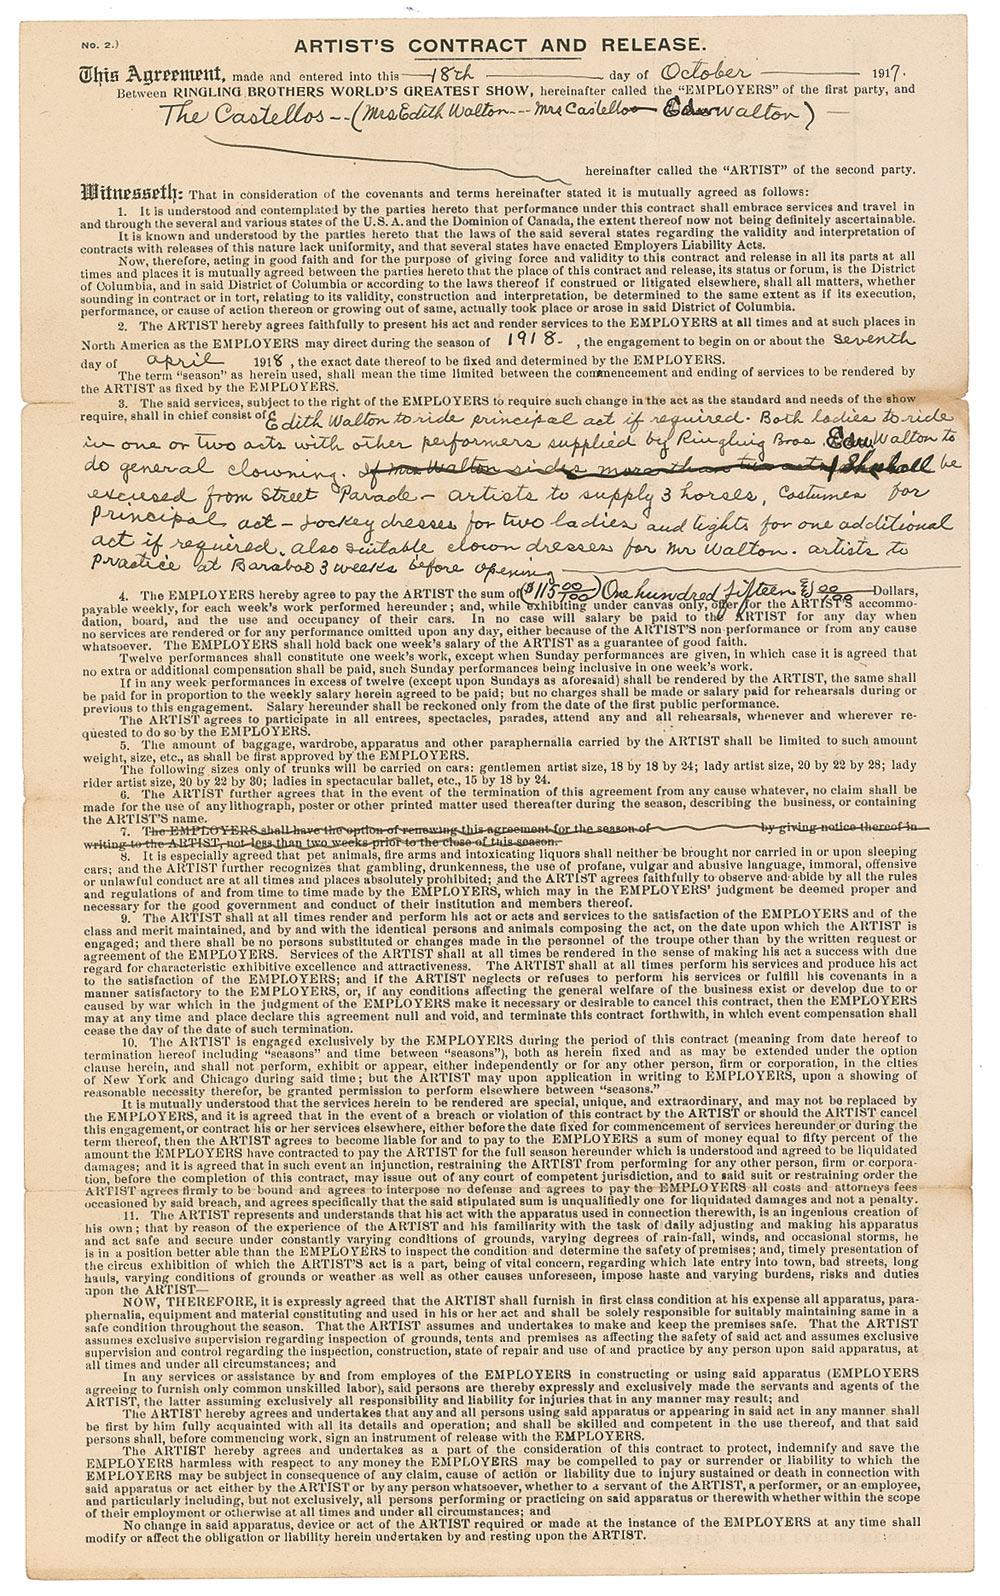 No. 2.)
ARTIST'S CONTRACT AND RELEASE.
This Agreement, made and entered into this 18th day of October 1917.
Between RINGLING BROTHERS WORLD'S GREATEST SHOW, hereinafter called the "EMPLOYERS" of the first party, and
The Castellos -- (Mrs Edith Walton -- Mrs Castello Walton)
hereinafter called the "ARTIST" of the second party.
Witnesseth: That in consideration of the covenants and terms hereinafter stated it is mutually agreed as follows:
1. It is understood and contemplated by the parties hereto that performance under this contract shall embrace services and travel in
and through the several and various states of the U.S.A. and the Dominion of Canada, the extent thereof now not being definitely ascertainable.
It is known and understood by the parties hereto that the laws of the said several states regarding the validity and interpretation of
contracts with releases of this nature lack uniformity, and that several states have enacted Employers Liability Acts.
Now, therefore, acting in good faith and for the purpose of giving force and validity to this contract and release in all its parts at all
times and places it is mutually agreed between the parties hereto that the place of this contract and release, its status or forum, is the District
of Columbia, and in said District of Columbia or according to the laws thereof if construed or litigated elsewhere, shall all matters, whether
sounding in contract or in tort, relating to its validity, construction and interpretation, be determined to the same extent as if its execution,
performance, or cause of action thereon or growing out of same, actually took place or arose in said District of Columbia.
2. The ARTIST hereby agrees faithfully to present his act and render services to the EMPLOYERS at all times and at such places in
North America as the EMPLOYERS may direct during the season of 1918- , the engagement to begin on or about the seventh
day of april 1918, the exact date thereof to be fixed and determined by the EMPLOYERS.
The term "season" as herein used, shall mean the time limited between the commencement and ending of services to be rendered by
the ARTIST as fixed by the EMPLOYERS.
3. The said services, subject to the right of the EMPLOYERS to require such change in the act as the standard and needs of the show
require, shall in chief consist of Edith Walton to ride principal act if required. Both ladies to ride
in one or two acts with other performers supplied by Ringling Bros. Walton to
do general clowning. If Mrs Walton rides more than two acts, She shall be
excused from Street Parade - artists to supply 3 horses, Costumes for
Principal act - Jockey dresses for two ladies and tights for one additional
act if required. also suitable clown dresses for Mr Walton. artists to
Practice at Baraboo 3 weeks before opening
4. The EMPLOYERS hereby agree to pay the ARTIST the sum of ($115 00/100) One hundred fifteen & 00/100 Dollars,
payable weekly, for each week's work performed hereunder; and, while exhibiting under canvas only, offer for the ARTIST'S accommo-
dation, board, and the use and occupancy of their cars. In no case will salary be paid to the ARTIST for any day when
no services are rendered or for any performance omitted upon any day, either because of the ARTIST'S non-performance or from any cause
whatsoever. The EMPLOYERS shall hold back one week's salary of the ARTIST as a guarantee of good faith.
Twelve performances shall constitute one week's work, except when Sunday performances are given, in which case it is agreed that
no extra or additional compensation shall be paid, such Sunday performances being inclusive in one week's work.
If in any week performances in excess of twelve (except upon Sundays as aforesaid) shall be rendered by the ARTIST, the same shall
be paid for in proportion to the weekly salary herein agreed to be paid; but no charges shall be made or salary paid for rehearsals during or
previous to this engagement. Salary hereunder shall be reckoned only from the date of the first public performance.
The ARTIST agrees to participate in all entrees, spectacles, parades, attend any and all rehearsals, whenever and wherever re-
quested to do so by the EMPLOYERS.
5. The amount of baggage, wardrobe, apparatus and other paraphernalia carried by the ARTIST shall be limited to such amount
weight, size, etc., as shall be first approved by the EMPLOYERS.
The following sizes only of trunks will be carried on cars: gentlemen artist size, 18 by 18 by 24; lady artist size, 20 by 22 by 28; lady
rider artist size, 20 by 22 by 30; ladies in spectacular ballet, etc., 15 by 18 by 24.
6. The ARTIST further agrees that in the event of the termination of this agreement from any cause whatever, no claim shall be
made for the use of any lithograph, poster or other printed matter used thereafter during the season, describing the business, or containing
the ARTIST'S name.
7. The EMPLOYERS shall have the option of renewing this agreement for the season of by giving notice thereof in
writing to the ARTIST, not less than two weeks prior to the close of this season.
8. It is especially agreed that pet animals, fire arms and intoxicating liquors shall neither be brought nor carried in or upon sleeping
cars; and the ARTIST further recognizes that gambling, drunkenness, the use of profane, vulgar and abusive language, immoral, offensive
or unlawful conduct are at all times and places absolutely prohibited; and the ARTIST agrees faithfully to observe and abide by all the rules
and regulations of and from time to time made by the EMPLOYERS, which may in the EMPLOYERS' judgment be deemed proper and
necessary for the good government and conduct of their institution and members thereof.
9. The ARTIST shall at all times render and perform his act or acts and services to the satisfaction of the EMPLOYERS and of the
class and merit maintained, and by and with the identical persons and animals composing the act, on the date upon which the ARTIST is
engaged; and there shall be no persons substituted or changes made in the personnel of the troupe other than by the written request or
agreement of the EMPLOYERS. Services of the ARTIST shall at all times be rendered in the sense of making his act a success with due
regard for characteristic exhibitive excellence and attractiveness. The ARTIST shall at all times perform his services and produce his act
to the satisfaction of the EMPLOYERS; and if the ARTIST neglects or refuses to perform his services or fulfill his covenants in a
manner satisfactory to the EMPLOYERS, or, if any conditions affecting the general welfare of the business exist or develop due to or
caused by war which in the judgment of the EMPLOYERS make it necessary or desirable to cancel this contract, then the EMPLOYERS
may at any time and place declare this agreement null and void, and terminate this contract forthwith, in which event compensation shall
cease the day of the date of such termination.
10. The ARTIST is engaged exclusively by the EMPLOYERS during the period of this contract (meaning from date hereof to
termination hereof including "seasons" and time between "seasons"), both as herein fixed and as may be extended under the option
clause herein, and shall not perform, exhibit or appear, either independently or for any other person, firm or corporation, in the cities
of New York and Chicago during said time; but the ARTIST may upon application in writing to EMPLOYERS, upon a showing of
reasonable necessity therefor, be granted permission to perform elsewhere between "seasons."
It is mutually understood that the services herein to be rendered are special, unique, and extraordinary, and may not be replaced by
the EMPLOYERS, and it is agreed that in the event of a breach or violation of this contract by the ARTIST or should the ARTIST cancel
this engagement, or contract his or her services elsewhere, either before the date fixed for commencement of services hereunder or during the
term thereof, then the ARTIST agrees to become liable for and to pay to the EMPLOYERS a sum of money equal to fifty percent of the
amount the EMPLOYERS have contracted to pay the ARTIST for the full season hereunder which is understood and agreed to be liquidated
damages; and it is agreed that in such event an injunction, restraining the ARTIST from performing for any other person, firm or corpora-
tion, before the completion of this contract, may issue out of any court of competent jurisdiction, and to said suit or restraining order the
ARTIST agrees firmly to be bound and agrees to interpose no defense and agrees to pay the EMPLOYERS all costs and attorneys fees
occasioned by said breach, and agrees specifically that the said stipulated sum is unqualifiedly one for liquidated damages and not a penalty.
11. The ARTIST represents and understands that his act with the apparatus used in connection therewith, is an ingenious creation of
his own; that by reason of the experience of the ARTIST and his familiarity with the task of daily adjusting and making his apparatus
and act safe and secure under constantly varying conditions of grounds, varying degrees of rain-fall, winds, and occasional storms, he
is in a position better able than the EMPLOYERS to inspect the condition and determine the safety of premises; and, timely presentation of
the circus exhibition of which the ARTIST'S act is a part, being of vital concern, regarding which late entry into town, bad streets, long
hauls, varying conditions of grounds or weather as well as other causes unforeseen, impose haste and varying burdens, risks and duties
upon the ARTIST—
NOW, THEREFORE, it is expressly agreed that the ARTIST shall furnish in first class condition at his expense all apparatus, para-
phernalia, equipment and material constituting and used in his or her act and shall be solely responsible for suitably maintaining same in a
safe condition throughout the season. That the ARTIST assumes and undertakes to make and keep the premises safe. That the ARTIST
assumes exclusive supervision regarding inspection of grounds, tents and premises as affecting the safety of said act and assumes exclusive
supervision and control regarding the inspection, construction, state of repair and use of and practice by any person upon said apparatus, at
all times and under all circumstances; and
In any services or assistance by and from employes of the EMPLOYERS in constructing or using said apparatus (EMPLOYERS
agreeing to furnish only common unskilled labor), said persons are thereby expressly and exclusively made the servants and agents of the
ARTIST, the latter assuming exclusively all responsibility and liability for injuries that in any manner may result; and
The ARTIST hereby agrees and undertakes that any and all persons using said apparatus or appearing in said act in any manner shall
be first by him fully acquainted with all its details and operation; and shall be skilled and competent in the use thereof, and that said
persons shall, before commencing work, sign an instrument of release with the EMPLOYERS.
The ARTIST hereby agrees and undertakes as a part of the consideration of this contract to protect, indemnify and save the
EMPLOYERS harmless with respect to any money the EMPLOYERS may be compelled to pay or surrender or liability to which the
EMPLOYERS may be subject in consequence of any claim, cause of action or liability due to injury sustained or death in connection with
said apparatus or act either by the ARTIST or by any person whatsoever, whether to a servant of the ARTIST, a performer, or an employee,
and particularly including, but not exclusively, all persons performing or practicing on said apparatus or therewith whether within the scope
of their employment or otherwise at all times and under all circumstances; and
No change in said apparatus, device or act of the ARTIST required or made at the instance of the EMPLOYERS at any time shall
modify or affect the obligation or liability herein undertaken by and resting upon the ARTIST.